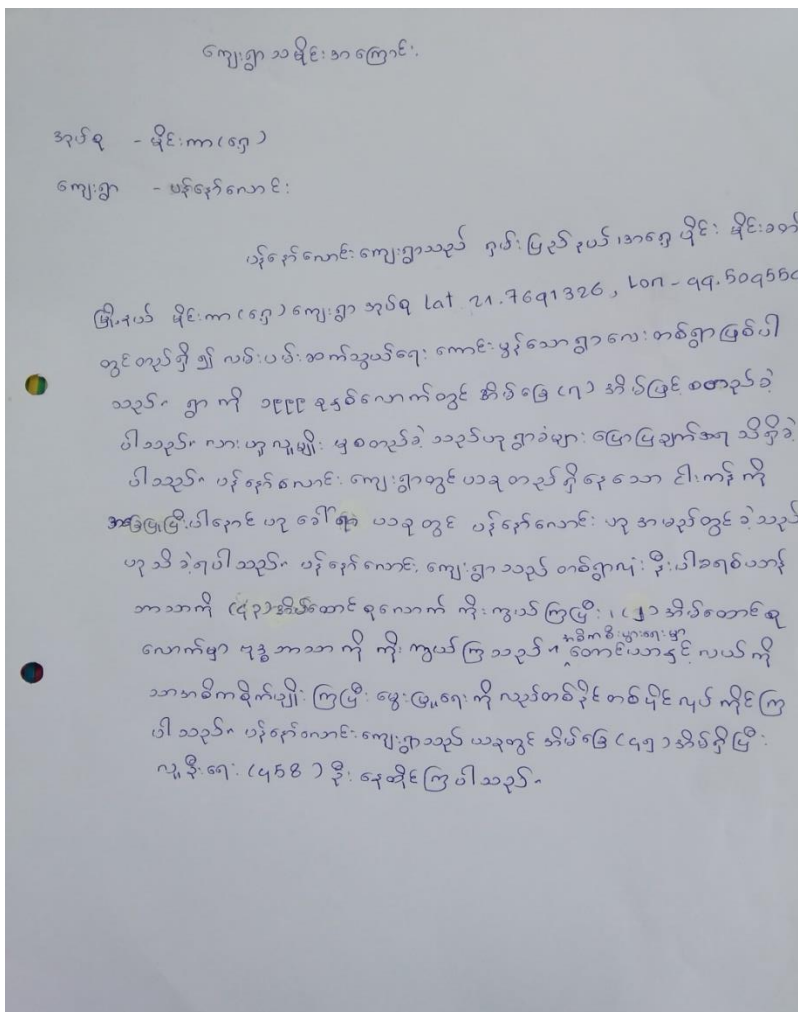 ကျေးရွာသမိုင်းအကြောင်း
အုပ်စု - မိုင်းကာ(ရှေ့)
ကျေးရွာ - ပန်နော်လောင်း
ပန်နော်လောင်းကျေးရွာသည် ရှမ်းပြည်နယ်၊အရှေ့ပိုင်း မိုင်းခတ်
မြို့နယ် မိုင်းကာ(ရှေ့)ကျေးရွာအုပ်စု Lat 21.7691326, Lon - 99.509550
တွင်တည်ရှိ၍ လမ်းပမ်းဆက်သွယ်ရေး ကောင်းမွန်သောရွာလေးတစ်ရွာဖြစ်ပါ
သည်။ ရွာကို ၁၉၉၉ ခုနှစ်လောက်တွင် အိမ်ခြေ(၇)အိမ်ဖြင့် စတည်ခဲ့
ပါသည်။ လားဟူလူမျိုး မှစတည်ခဲ့သည်ဟုရွာခံများ ပြောပြချက်အရ သိရှိခဲ့
ပါသည်။ ပန်နော်လောင်းကျေးရွာတွင်ယခုတည်ရှိနေသော ငါးကန်ကို
အခြေပြုပြီး ဟုခေါ်ရာ ယခုတွင် ပန်နော်လောင်း ဟုအမည်တွင်ခဲ့သည်
ဟုသိခဲ့ရပါသည်။ ပန်နော်လောင်းကျေးရွာသည် တစ်ရွာလုံးနီးပါးခရစ်ယာန်
ဘာသာကို (၄၃)အိမ်ထောင်စုလောက် ကိုးကွယ်ကြပြီး၊ (၂)အိမ်ထောင်စု
လောက်မှာ ဗုဒ္ဓဘာသာကို ကိုးကွယ်ကြသည်။ အဓိကစီးပွားရေးမှာ တောင်ယာနှင့်လယ်ကို
သာအဓိကစိုက်ပျိုးကြပြီး မွေးမြူရေးကိုလည်းတစ်နိုင်တစ်ပိုင်လုပ်ကိုင်ကြ
ပါသည်။ ပန်နော်လောင်းကျေးရွာသည် ယခုတွင် အိမ်ခြေ(၄၅)အိမ်ရှိပြီး
လူဦးရေ (458)ဦး နေထိုင်ကြပါသည်။